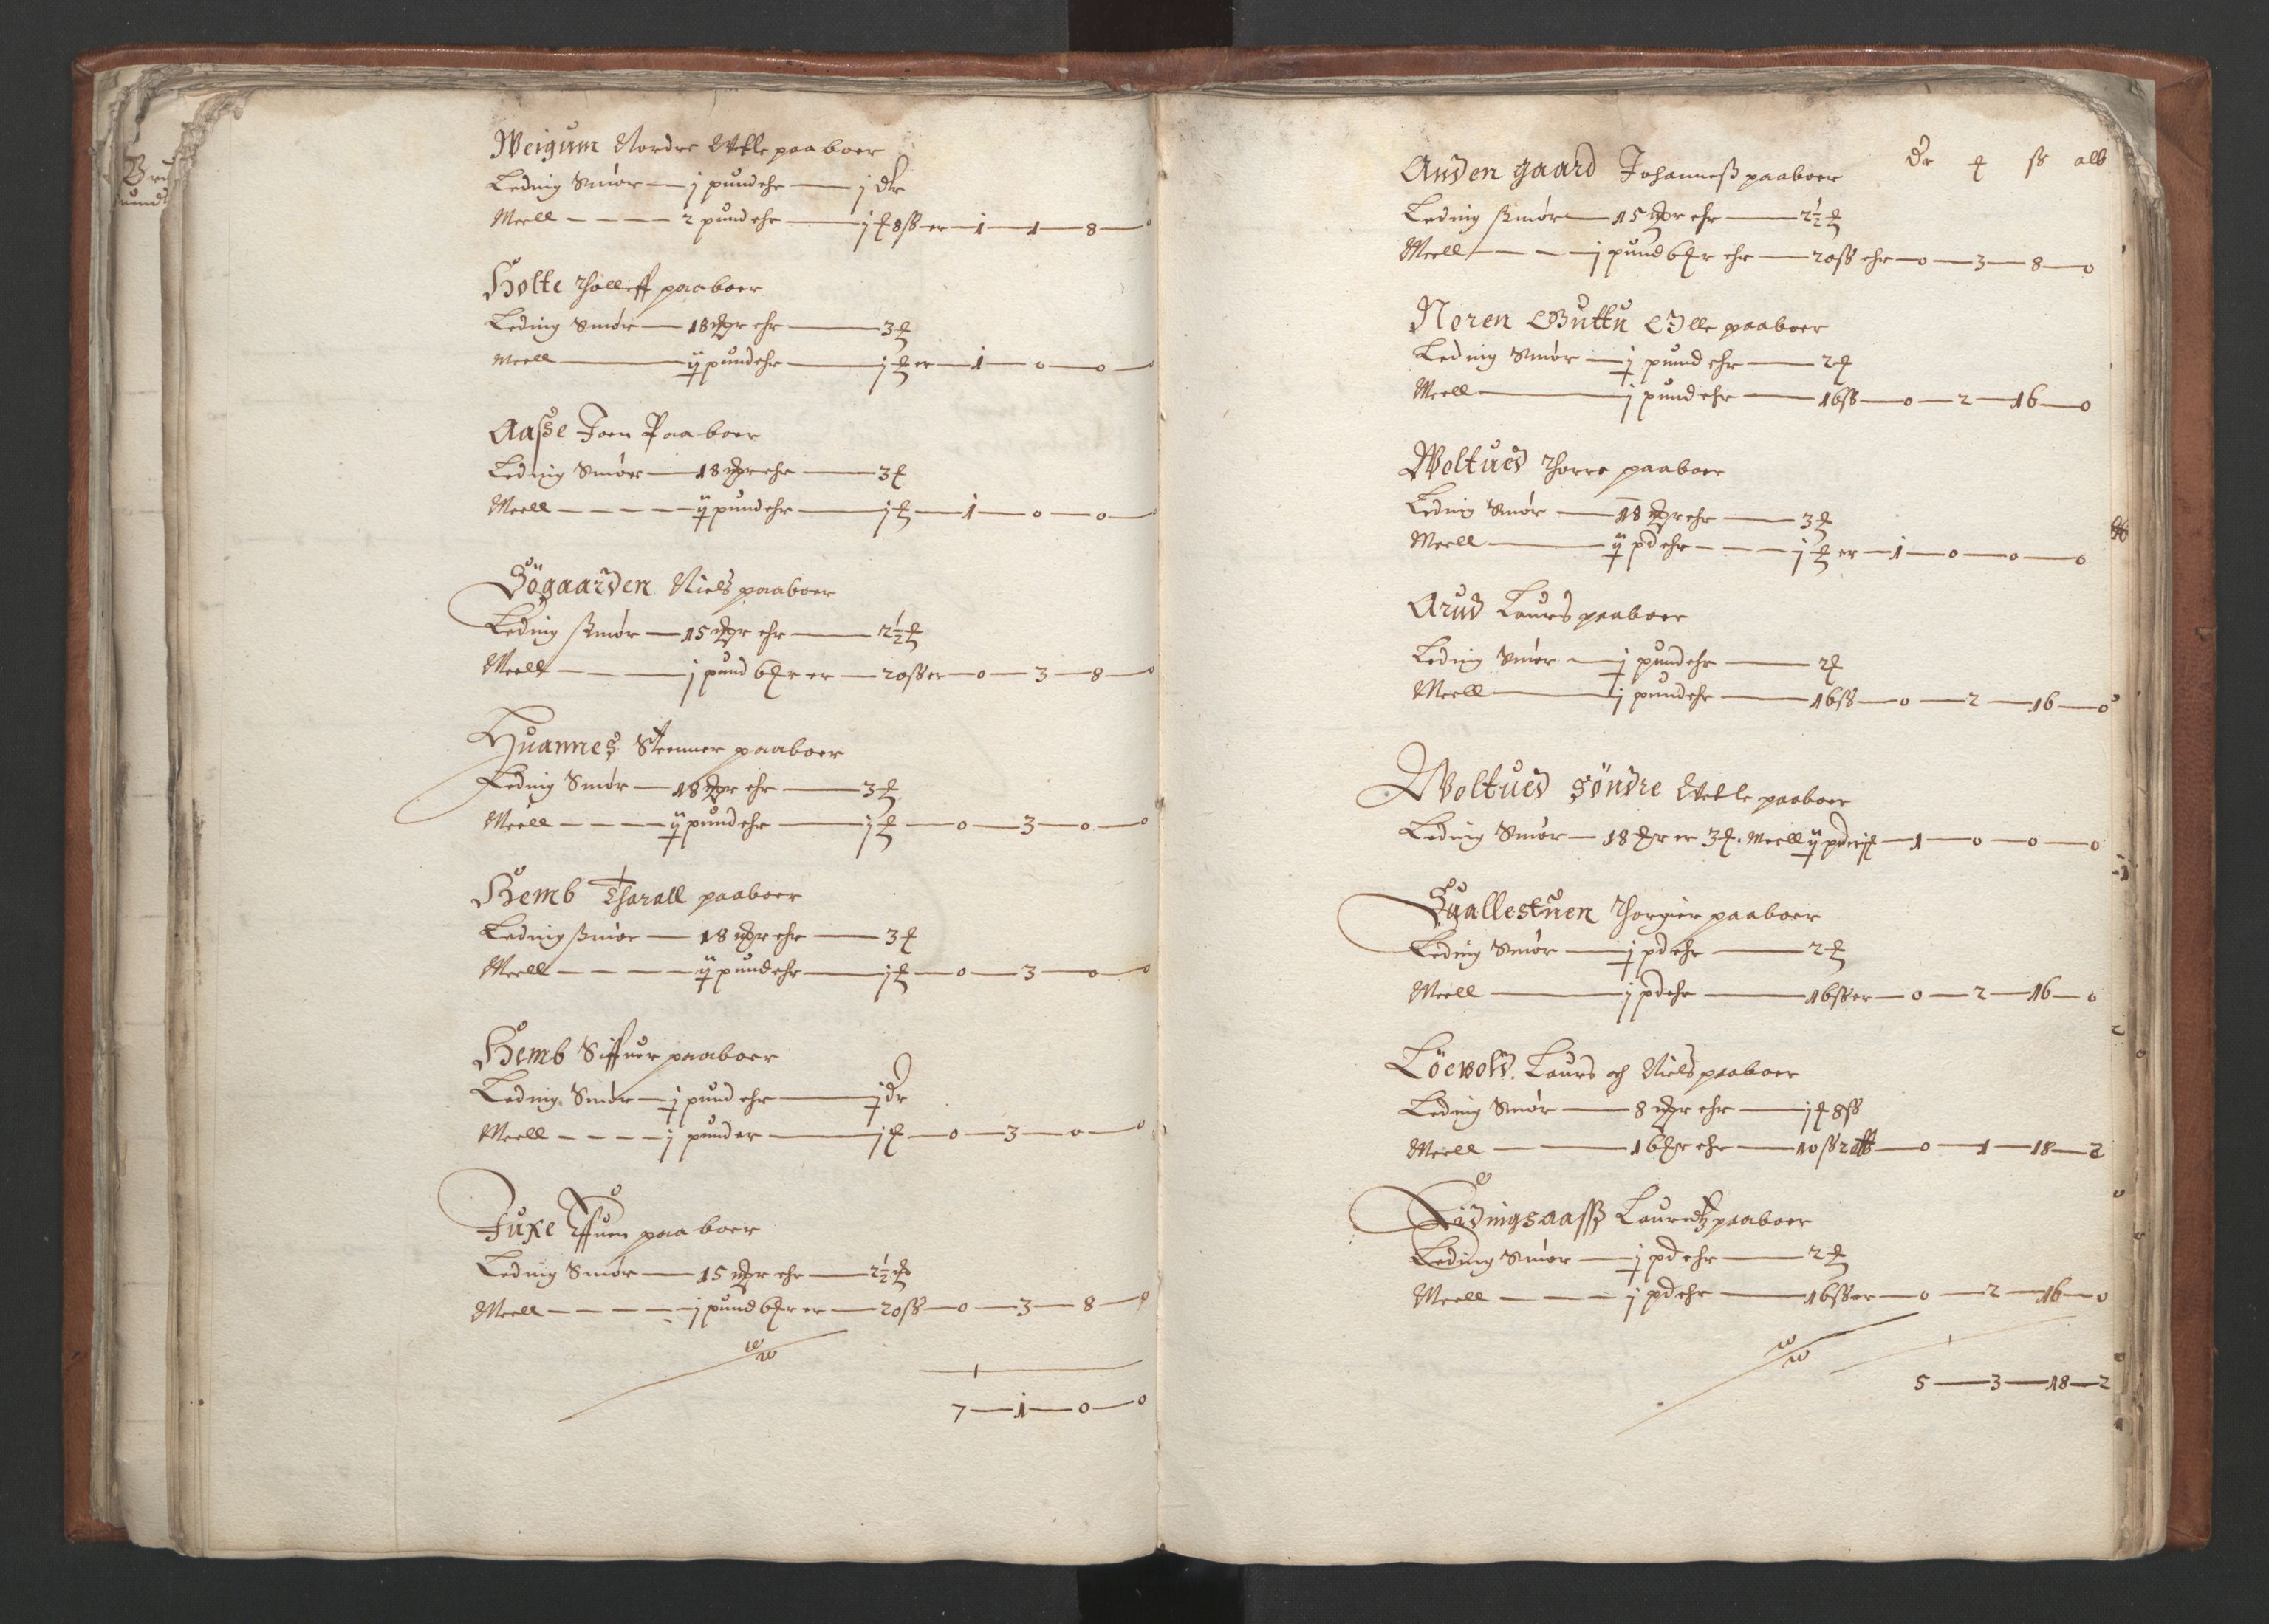 Weigum Nordre Wetle paaboer
Leding Smør — j pund ehr — j dr
Meell — 2 pund ehr — j ʠ 8 ß er — 1 — 1 — 8 — 0
Holte Tolleff paaboer
Leding Smør — 18 mʠr ehr — 3 ʠ
Meell — ij pund ehr — j ʠ er — 1 — 0 — 0 — 0
Aasse Joen Paaboer
Leding Smør — 18 mʠr ehr — 3 ʠ
Meell — ij pund ehr — j ʠ — 1 — 0 — 0 — 0
Sögaarden Niels paaboer
Leding smør — 15 mʠr ehr — 2½ ʠ
Meell — j pund 6 ʠr er — 20 ß er — 0 — 3 — 8 — 0
Huannes Steenner paaboer
Leding Smør — 18 mʠr ehr — 3 ʠ
Meell — ij pund ehr — j ʠ — 0 — 3 — 0 — 0
Hemb Tharall paaboer
Leding smør — 18 mʠr ehr — 3 ʠ
Meell — ij pund ehr — j ʠ — 0 — 3 — 0 — 0
Hemb Siffuer paaboer
Leding Smør — j pund ehr — j dr
Meell — j pund er — j ʠ — 0 — 3 — 0 — 0
Fuxe Iffuer paaboer
Leding Smør — 15 mʠr ehr — 2½ ʠ
Meell — j pund 6 ʠr er — 20 ß — 0 — 3 — 8 — 0
7 — 1 — 0 — 0
dr ʠ ß alb
Anden gaard Johanness paaboer
Leding smør — 15 mʠr ehr — 2½ ʠ
Meell — j pund 6 ʠr ehr — 20 ß ehr — 0 — 3 — 8 — 0
Noren Guttu Olle paaboer
Leding Smør — j pund ehr — 2 ʠ
Meell — j pund ehr — 16 ß — 0 — 2 — 16 — 0
Woltued Thorre paaboer
Leding Smør — 18 mʠr ehr — 3 ʠ
Meell — ij pd ehr — j ʠ er — 1 — 0 — 0 — 0
Arud Laurs paaboer
Leding Smør — j pund ehr — 2 ʠ
Meell — j pund ehr — 16 ß — 0 — 2 — 16 — 0
Woltued Söndre Wetle paaboer
Leding Smør — 18 ʠr er 3 ʠ. Meell ij pd er j ʠ — 1 — 0 — 0 — 0
Suallestuen Thorgier paaboer
Leding Smør — j pd ehr — 2 ʠ
Meell — j pd ehr — 16 ß er — 0 — 2 — 16 — 0
Löevold. Laurs och Niels paaboer
Leding Smør — 8 mʠr ehr — j ʠ 8 ß
Meell — 16 ʠr ehr — 10 ß 2 alb — 0 — 1 — 18 — 2
Lidingsaass Lauredtz paaboer
Leding Smør — j pd ehr — 2 ʠ
Meell — j pd ehr — 16 ß er — 0 — 2 — 16 — 0
5 — 3 — 18 — 2